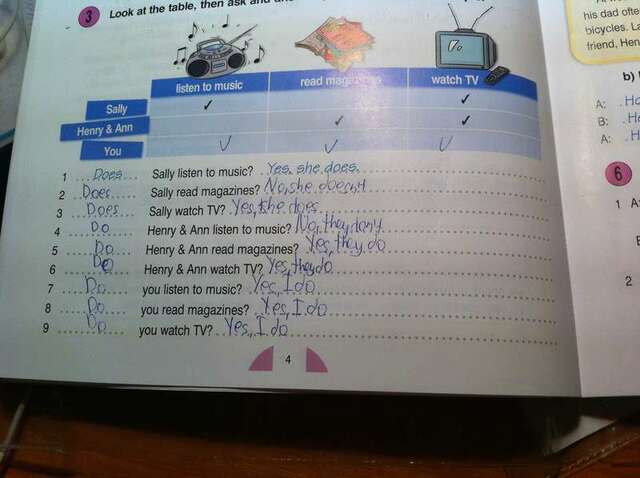 3 Look at the table, then ask and
listen to music read magazines watch TV
Sally ✓ ✓
Henry & Ann ✓ ✓
You V V V
1 Does Sally listen to music? Yes, she does.
2 Does Sally read magazines? No, she doesn't
3 Does Sally watch TV? Yes, she does
4 Do Henry & Ann listen to music? No, they don't
5 Do Henry & Ann read magazines? Yes, they do
6 Do Henry & Ann watch TV? Yes, they do
7 Do you listen to music? Yes, I do
8 Do you read magazines? Yes, I do
9 Do you watch TV? Yes, I do
4
his dad ofte
bicycles. La
friend, Hen
b)
A:
B:
A:
6
1
2